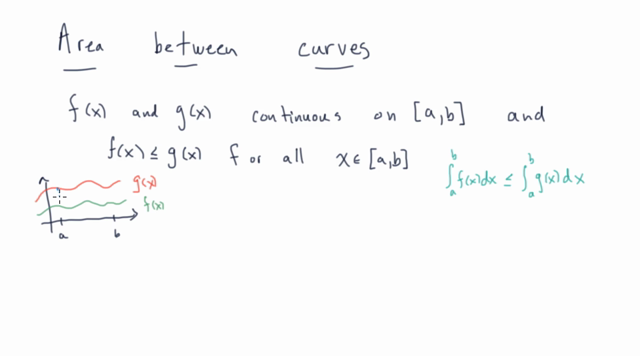 Area between curves
f(x) and g(x) continuous on [a,b] and
f(x) ≤ g(x) for all x ∈ [a,b]
∫_a^b f(x)dx ≤ ∫_a^b g(x)dx
g(x)
f(x)
a b